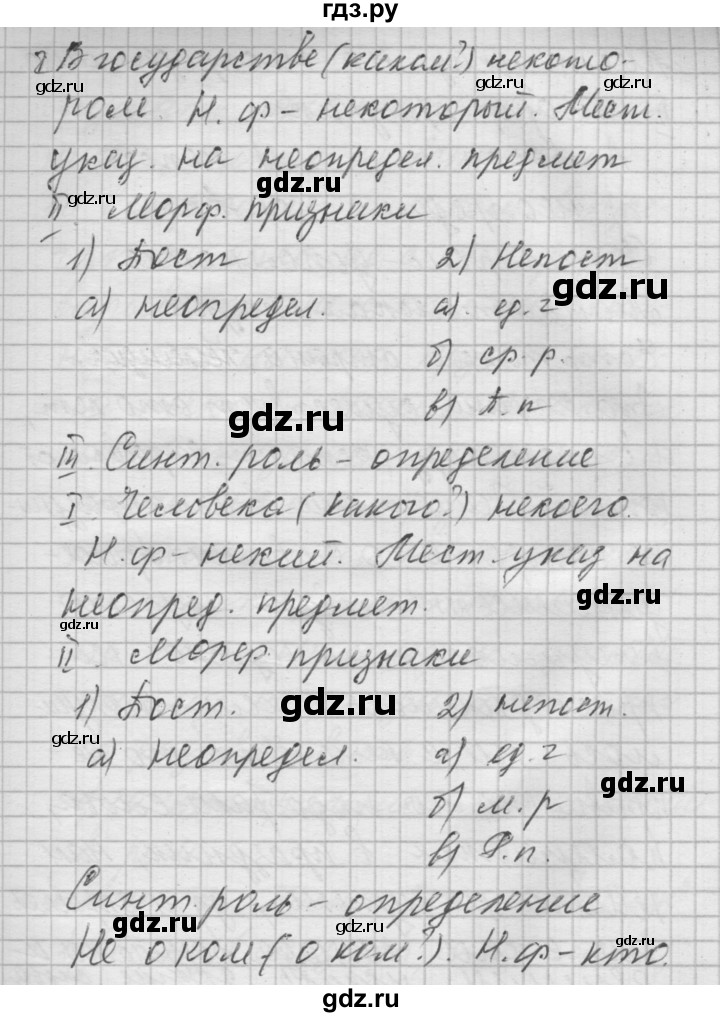 гдз.ру
I В государстве (каком?) некото-
ром. Н. ф – некоторый. Мест.
указ. на неопредел. предмет
gdz.ru gdz.ru gdz.ru
II. Морф. признаки
1) Пост 2) Непост
gdz.ru
а) неопредел. а). ед. ч
б) ср. р.
в) П. п
gdz.ru
III. Синт. роль – определение
gdz.ru
I. Человека (какого?) некоего.
Н. ф – некий. Мест. указ на
gdz.ru
неопред. предмет.
gdz.ru
II. Морф признаки
1) Пост. 2) непост.
gdz.ru
gdz.ru
а) неопредел. а) ед. ч
gdz.ru
б) м. р
в) Р. п.
Синт. роль – определение
gdz.ru
Не о ком (о ком?). Н. ф – кто.
gdz.ru gdz.ru
gdz.ru